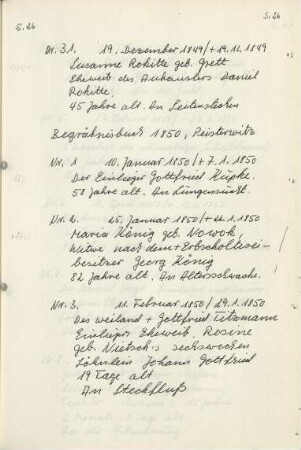 S. 26 S. 26
Nr. 31. 19. Dezember 1849/+19.12.1849
Susanne Rokitte geb. Grett
Eheweib des Auhäuslers Daniel
Rokitte.
45 Jahre alt. An Seitenstechen
Begräbnisbuch 1850, Peisterwitz
Nr. 1 10. Januar 1850/+7.1.1850
Der Einlieger Gottfried Küpke.
58 Jahre alt. An Lungensucht.
Nr. 2. 25. Januar 1850/+22.1.1850
Maria König geb. Nowok,
Witwe nach dem + Erbscholtisei-
besitzer Georg König
82 Jahre alt. An Altersschwäche.
Nr. 3. 11. Februar 1850/29.1.1850
Des weiland + Gottfried Titzmann
Einliegers Eheweib. Rosine
geb. Nietsch's sechswochen
Söhnlein Johann Gottfried
19 Tage alt
An Steckfluß